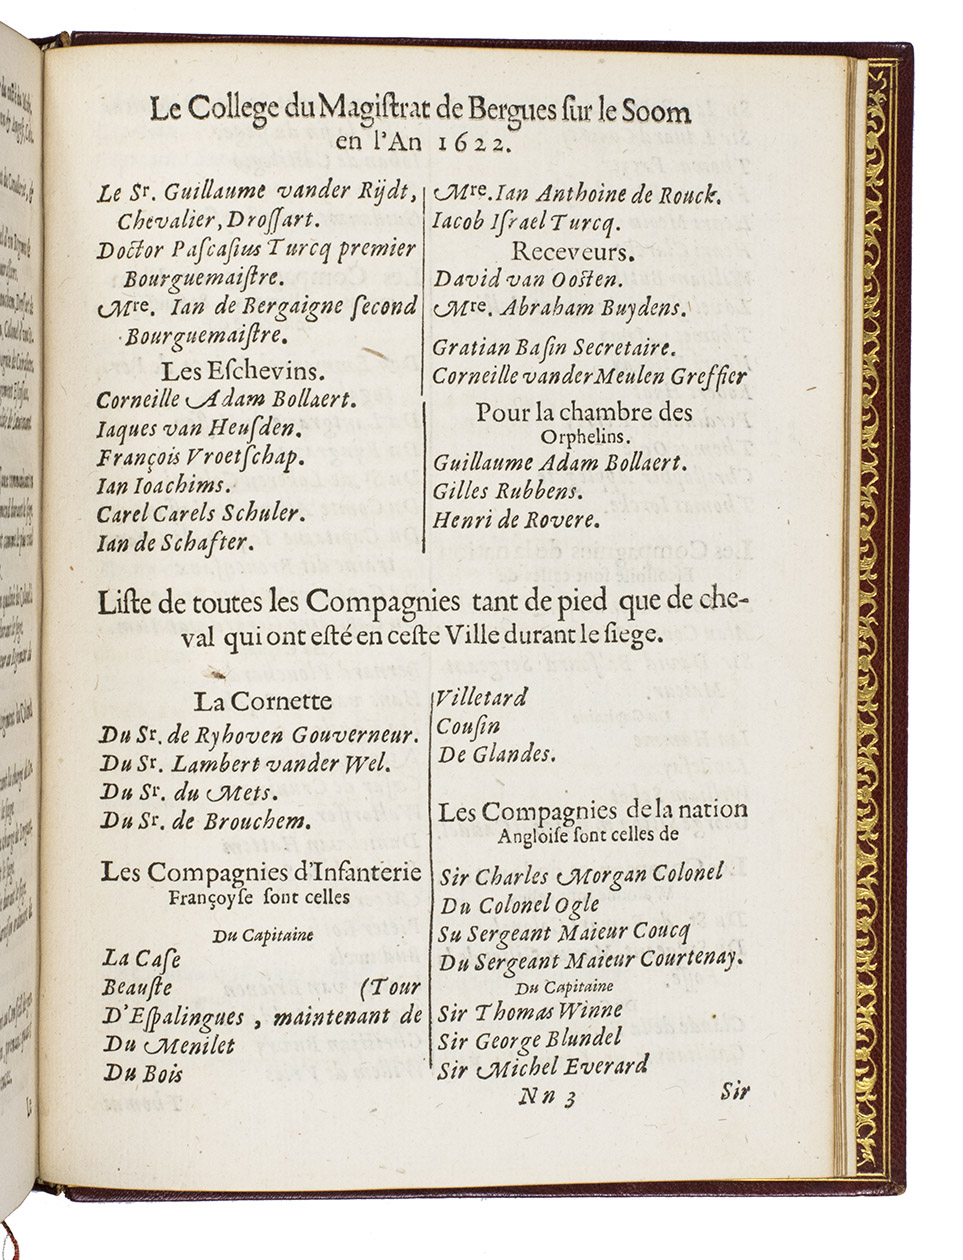 Le College du Magiſtrat de Bergues ſur le Soom
en l'An 1622.
Le Sr. Guillaume vander Rijdt,
Chevalier, Droſſart.
Doctor Paſcaſius Turcq premier
Bourguemaiſtre.
Mre. Ian de Bergaigne ſecond
Bourguemaiſtre.
Les Eſchevins.
Corneille Adam Bollaert.
Iaques van Heuſden.
François Vroetſchap.
Ian Ioachims.
Carel Carels Schuler.
Ian de Schafter.
Mre. Ian Anthoine de Rouck.
Iacob Iſrael Turcq.
Receveurs.
David van Ooſten.
Mre. Abraham Buydens.
Gratian Baſin Secretaire.
Corneille vander Meulen Greffier
Pour la chambre des
Orphelins.
Guillaume Adam Bollaert.
Gilles Rubbens.
Henri de Rovere.
Liſte de toutes les Compagnies tant de pied que de che-
val qui ont eſté en ceſte Ville durant le ſiege.
La Cornette
Du Sr. de Ryhoven Gouverneur.
Du Sr. Lambert vander Wel.
Du Sr. du Mets.
Du Sr. de Brouchem.
Les Compagnies d'Infanterie
Françoyſe ſont celles
Du Capitaine
La Caſe
Beauſte (Tour
D'Eſpalingues, maintenant de
Du Menilet
Du Bois
Villetard
Couſin
De Glandes.
Les Compagnies de la nation
Angloiſe ſont celles de
Sir Charles Morgan Colonel
Du Colonel Ogle
Su Sergeant Maieur Coucq
Du Sergeant Maieur Courtenay.
Du Capitaine
Sir Thomas Winne
Sir George Blundel
Sir Michel Everard
Nn 3 Sir